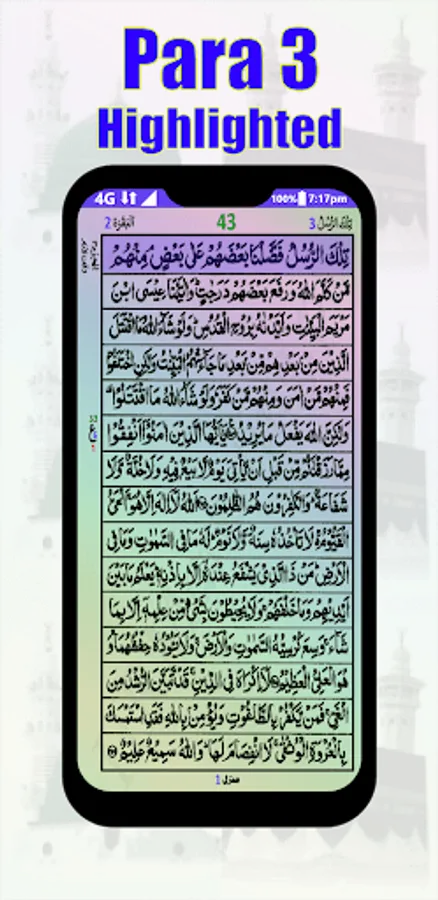 Para 3
Highlighted
4G 100% 7:17pm
البقرة 2 43 تلك الرسل 3
تِلْكَ الرُّسُلُ فَضَّلْنَا بَعْضَهُمْ عَلٰى بَعْضٍ مِنْهُمْ
مَّنْ كَلَّمَ اللهُ وَرَفَعَ بَعْضَهُمْ دَرَجٰتٍ وَاٰتَيْنَا عِيْسَى ابْنَ
مَرْيَمَ الْبَيِّنٰتِ وَاَيَّدْنٰهُ بِرُوْحِ الْقُدُسِ وَلَوْ شَآءَ اللهُ مَا اقْتَتَلَ
الَّذِيْنَ مِنْ بَعْدِهِمْ مِّنْ بَعْدِ مَا جَآءَتْهُمُ الْبَيِّنٰتُ وَلٰكِنِ اخْتَلَفُوْا
فَمِنْهُمْ مَّنْ اٰمَنَ وَمِنْهُمْ مَّنْ كَفَرَ وَلَوْ شَآءَ اللهُ مَا اقْتَتَلُوْا
وَلٰكِنَّ اللهَ يَفْعَلُ مَا يُرِيْدُ يٰٓاَيُّهَا الَّذِيْنَ اٰمَنُوْٓا اَنْفِقُوْا
مِمَّا رَزَقْنٰكُمْ مِّنْ قَبْلِ اَنْ يَّاْتِيَ يَوْمٌ لَّا بَيْعٌ فِيْهِ وَلَا خُلَّةٌ وَّلَا
شَفَاعَةٌ وَالْكٰفِرُوْنَ هُمُ الظّٰلِمُوْنَ اَللهُ لَآ اِلٰهَ اِلَّا هُوَ اَلْحَيُّ
الْقَيُّوْمُ لَا تَاْخُذُهٗ سِنَةٌ وَّلَا نَوْمٌ لَهٗ مَا فِي السَّمٰوٰتِ وَمَا فِي
الْاَرْضِ مَنْ ذَا الَّذِيْ يَشْفَعُ عِنْدَهٗٓ اِلَّا بِاِذْنِهٖ يَعْلَمُ مَا بَيْنَ
اَيْدِيْهِمْ وَمَا خَلْفَهُمْ وَلَا يُحِيْطُوْنَ بِشَيْءٍ مِّنْ عِلْمِهٖٓ اِلَّا بِمَا
شَآءَ وَسِعَ كُرْسِيُّهُ السَّمٰوٰتِ وَالْاَرْضَ وَلَا يَـُٔوْدُهٗ حِفْظُهُمَا وَ
هُوَ الْعَلِيُّ الْعَظِيْمُ لَآ اِكْرَاهَ فِي الدِّيْنِ قَدْ تَّبَيَّنَ الرُّشْدُ مِنَ
الْغَيِّ فَمَنْ يَّكْفُرْ بِالطَّاغُوْتِ وَيُؤْمِنْ بِاللهِ فَقَدِ اسْتَمْسَكَ
بِالْعُرْوَةِ الْوُثْقٰى لَا انْفِصَامَ لَهَا وَاللهُ سَمِيْعٌ عَلِيْمٌ
منزل 1